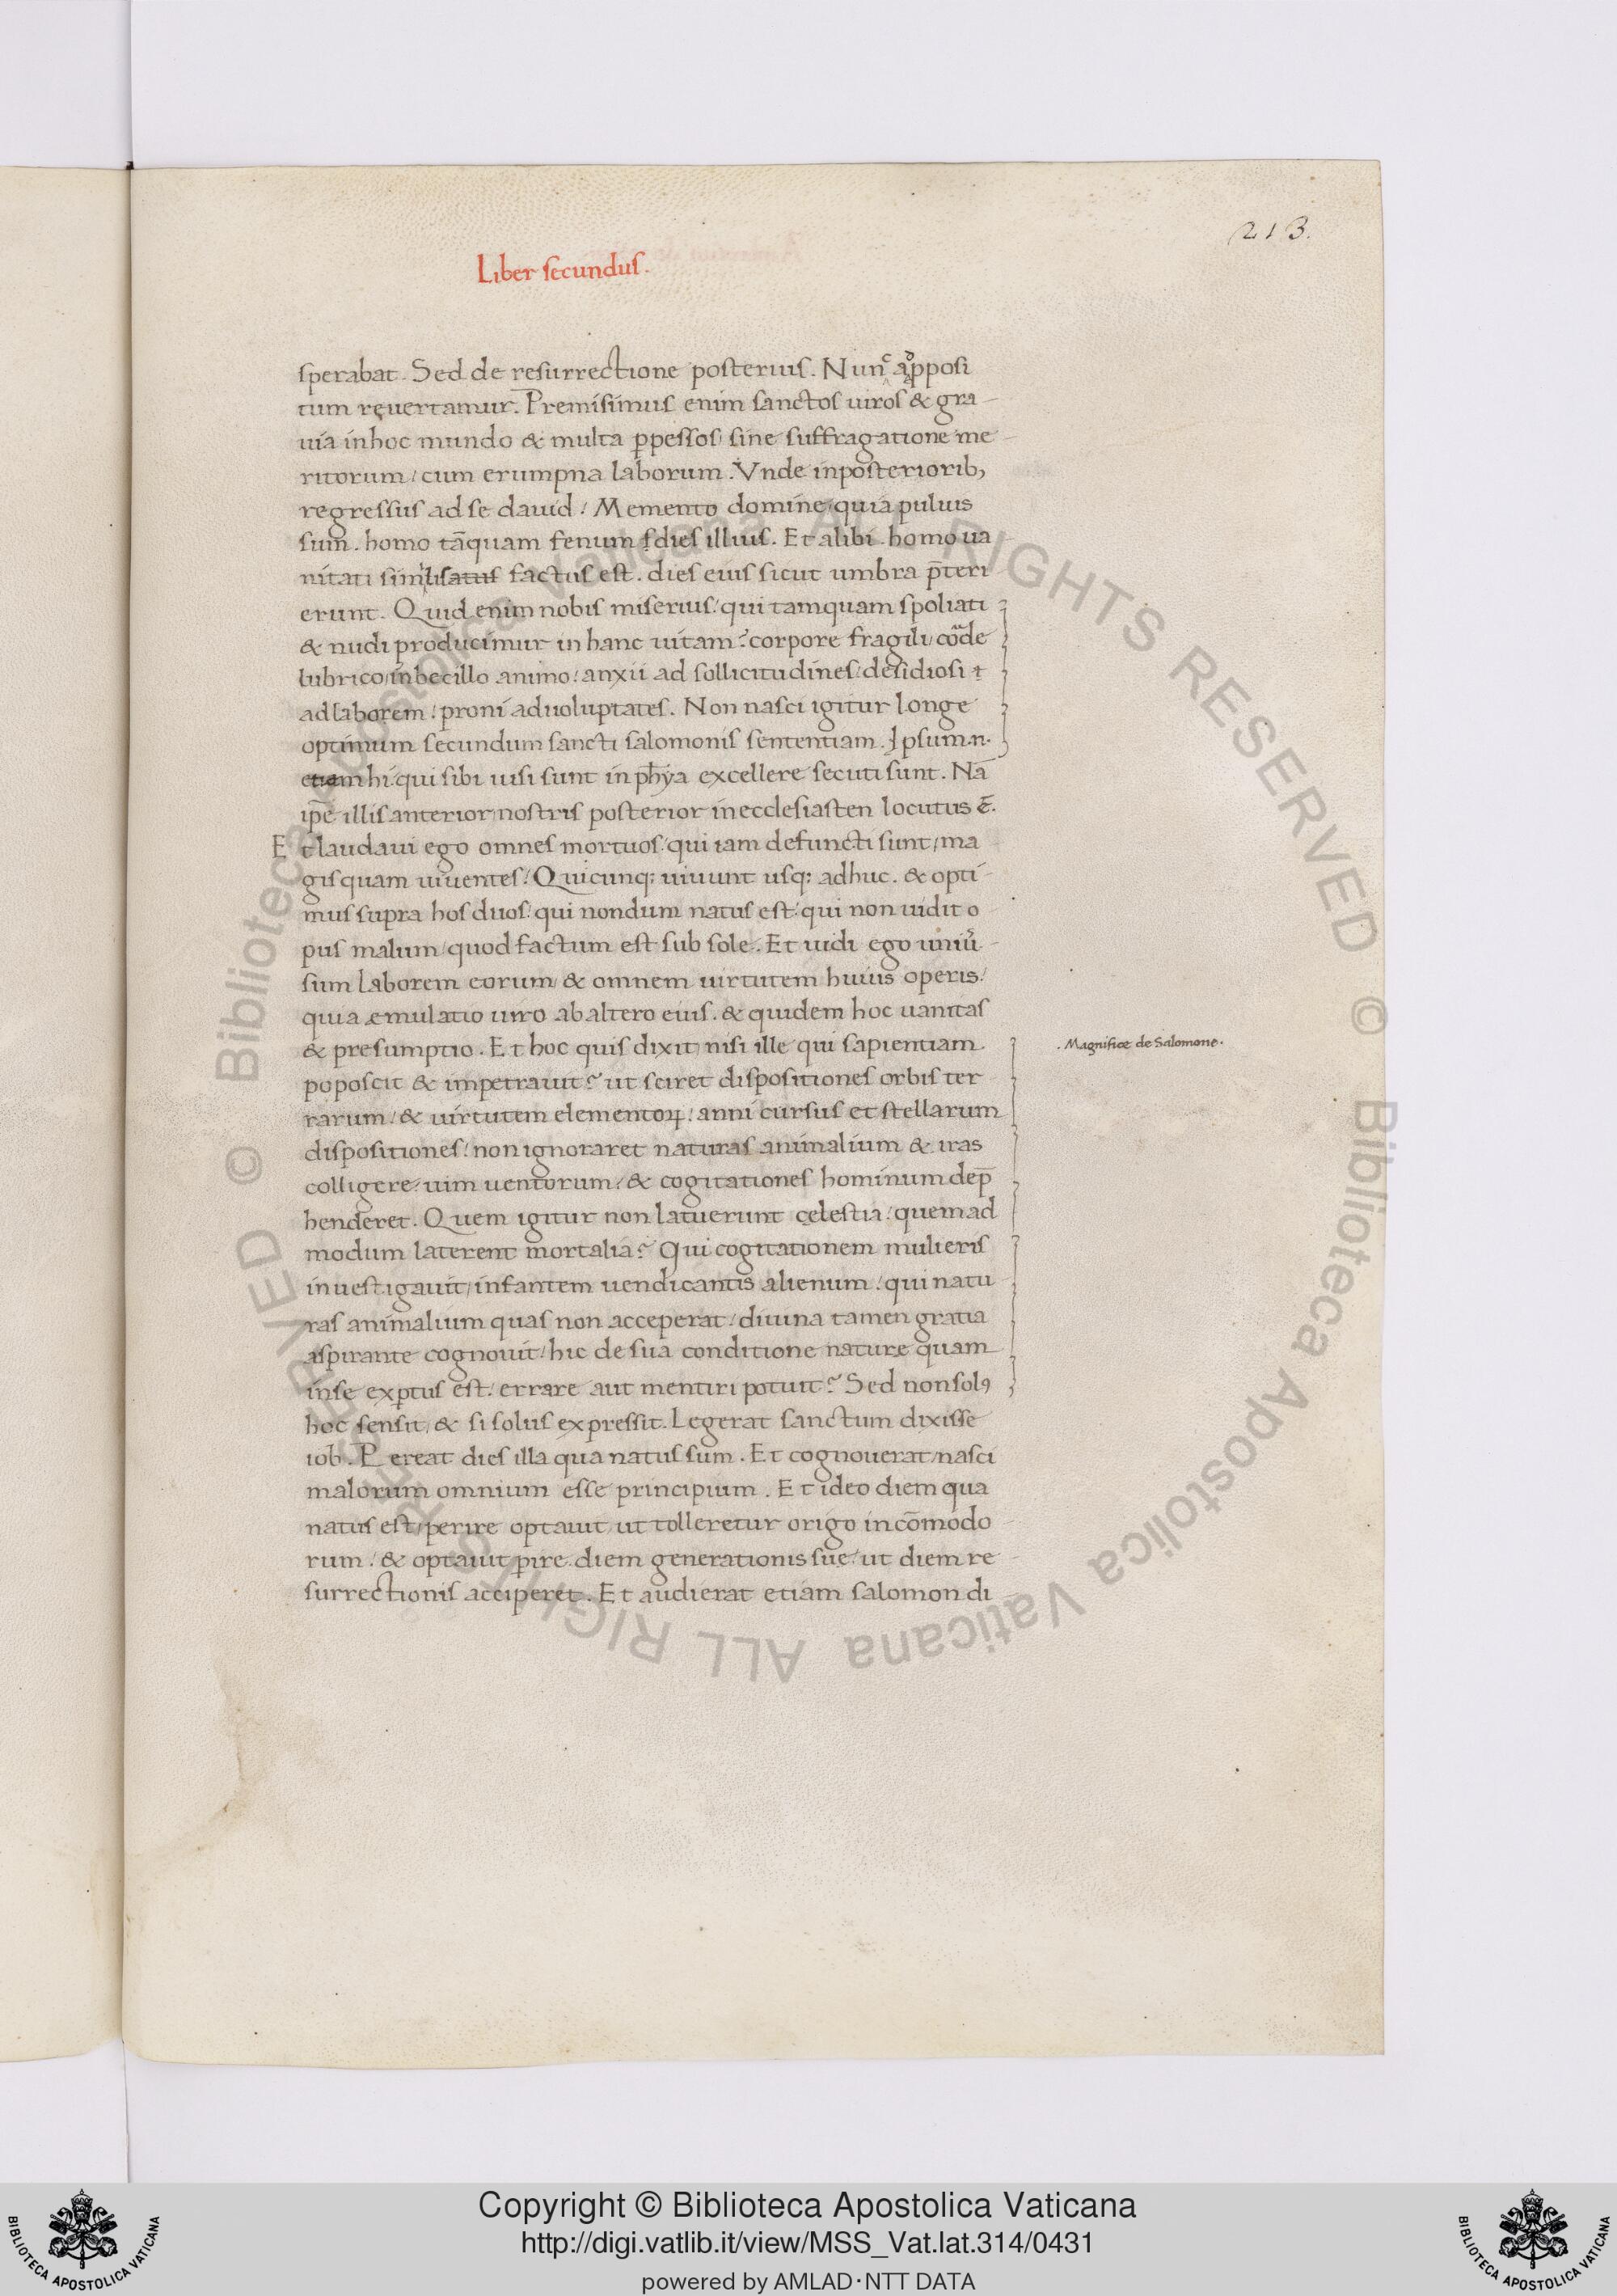 213.
Liber secundus.
sperabat. Sed de resurrectione posterius. Nunc ad pposi
tum reuertamur. Premisimus enim sanctos uiros & gra-
uia in hoc mundo & multa ꝑpessos sine suffragatione me-
ritorum / cum erumpna laborum. Vnde in posteriorib;
regressus ad se dauid / Memento domine quia puluis
sum. homo tāquam fenum dies illius. Et alibi. homo ua-
nitati similis factus est. dies eius sicut umbra p̄teri-
erunt. Quid enim nobis miserius / qui tamquam spoliati
& nudi producimur in hanc uitam? corpore fragili / corde
lubrico / inbecillo animo / anxii ad sollicitudines / desidiosi
ad laborem / proni ad uoluptates. Non nasci igitur longe
optimum secundum sancti salomonis sententiam. Ipsum .n.
etiam hi qui sibi uisi sunt in ph̄ya excellere secuti sunt. Nā
ip̄e illis anterior nostris posterior in ecclesiasten locutus ē.
Et laudaui ego omnes mortuos / qui iam defuncti sunt / ma
gis quam uiuentes / Quicunq; uiuunt usq; adhuc. & opti-
mus supra hos duos / qui nondum natus est / qui non uidit o
pus malum / quod factum est sub sole. Et uidi ego uniū-
sum laborem eorum / & omnem uirtutem huius operis /
quia emulatio uiro ab altero eius. & quidem hoc uanitas
& presumptio. Et hoc quis dixit nisi ille qui sapientiam
poposcit & impetrauit? ut sciret dispositiones orbis ter
rarum / & uirtutem elementoꝝ / anni cursus et stellarum
dispositiones / non ignoraret naturas animalium & iras
colligere / uim uentorum / & cogitationes hominum dep̄
henderet. Quem igitur non latuerunt cęlestia / quemad
modum laterent mortalia? Qui cogitationem mulieris
inuestigauit / infantem uendicantis alienum / qui natu-
ras animalium quas non acceperat / diuina tamen gratia
aspirante cognouit / hic de sua conditione nature quam
in se exꝑtus est / errare aut mentiri potuit? Sed non solꝰ
hoc sensit / & si solus expressit. Legerat sanctum dixisse
iob. Pereat dies illa qua natus sum. Et cognouerat / nasci
malorum omnium esse principium. Et ideo diem qua
natus est / perire optauit / ut tolleretur origo incōmodo-
rum / & optauit ꝑire diem generationis suę / ut diem re-
surrectionis acciperet. Et audierat etiam salomon di
. Magnifice de Salomone.
© Biblioteca Apostolica Vaticana ALL RIGHTS RESERVED © Biblioteca Apostolica Vaticana ALL RIGHTS RESERVED
Copyright © Biblioteca Apostolica Vaticana
http://digi.vatlib.it/view/MSS_Vat.lat.314/0431
powered by AMLAD·NTT DATA
BIBLIOTECA APOSTOLICA VATICANA
BIBLIOTECA APOSTOLICA VATICANA